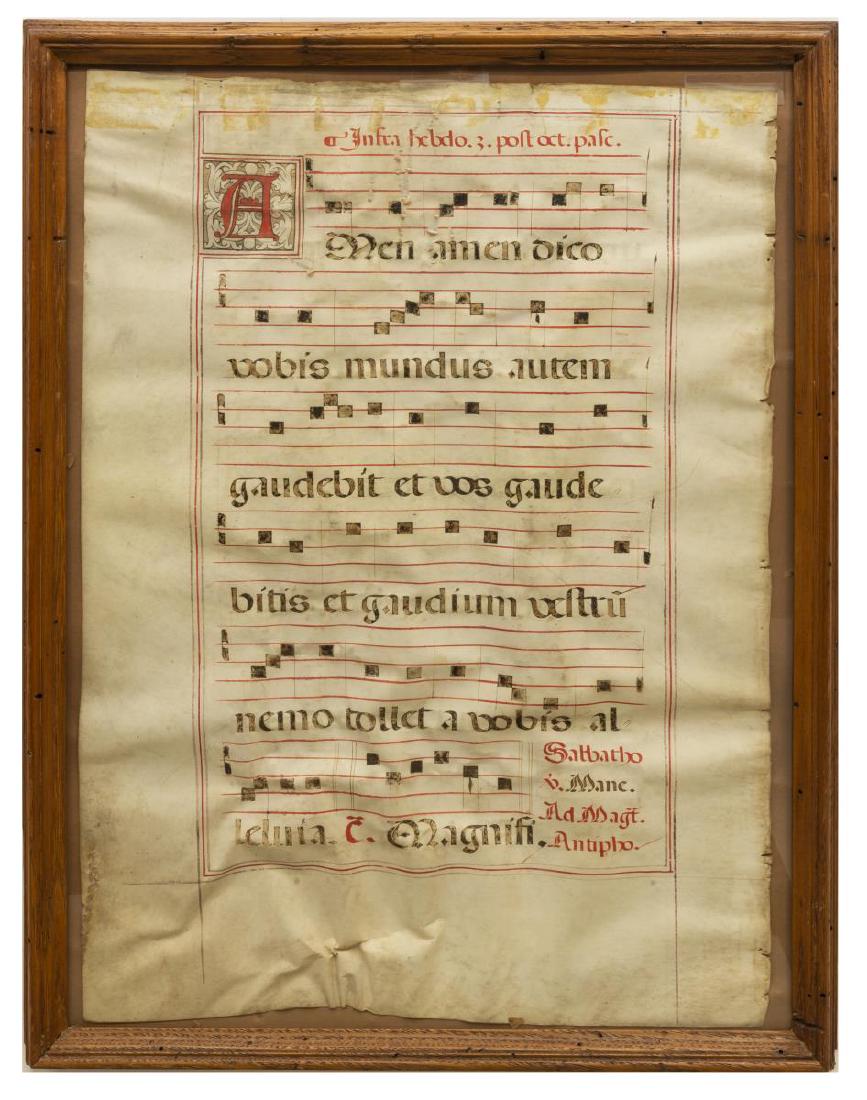 Infra hebdo. 3. post oct. pasc.
AMen amen dico
vobis mundus autem
gaudebit et vos gaude
bitis et gaudium vestrũ
nemo tollet a vobis al
leluia. c̃. Magnifi.
Sabbatho
v̇. Mane.
Ad Magt̃.
Antipho.